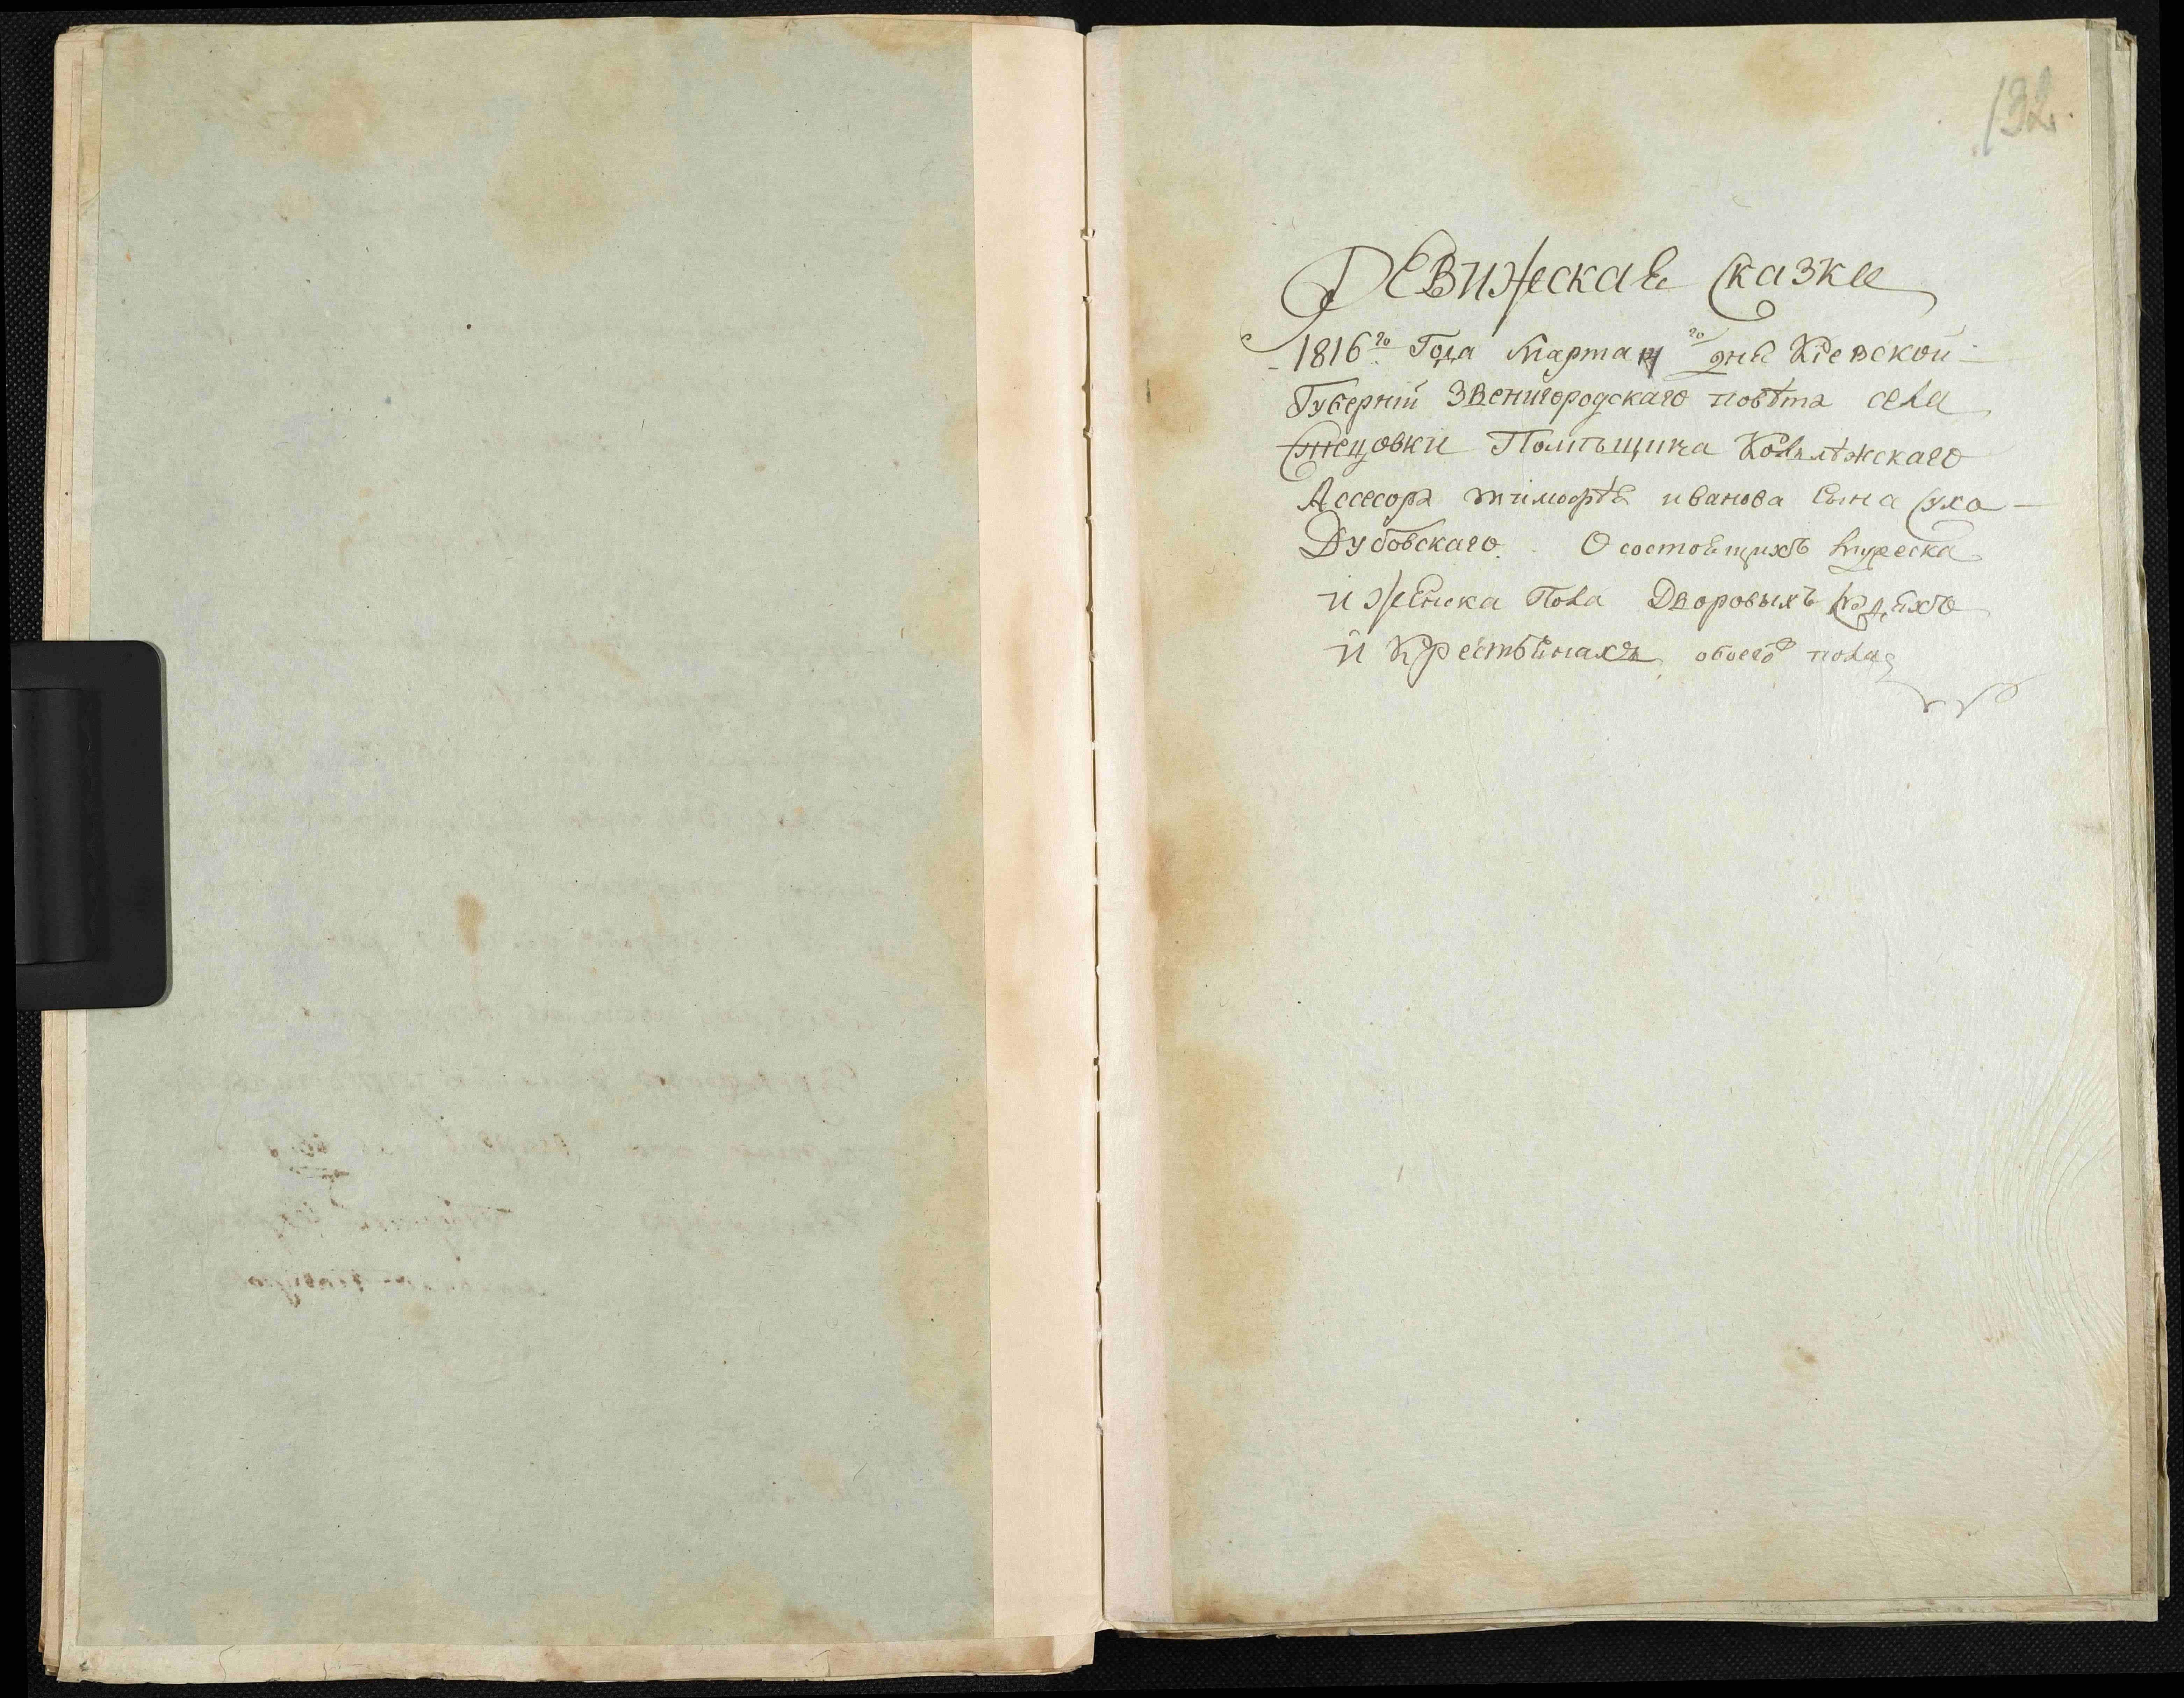 132.
Ревижская Сказка
1816го Года Марта го дня Кіевской
Губерніи Звенигородскаго повѣта села
Помѣщика Колѣжскаго
Ассесора тимофѣя иванова сына Сухо-
Дубовскаго. О состоящихъ мужеска
и женска пола Дворовыхъ людяхъ
и Крестьянахъ обоего пола